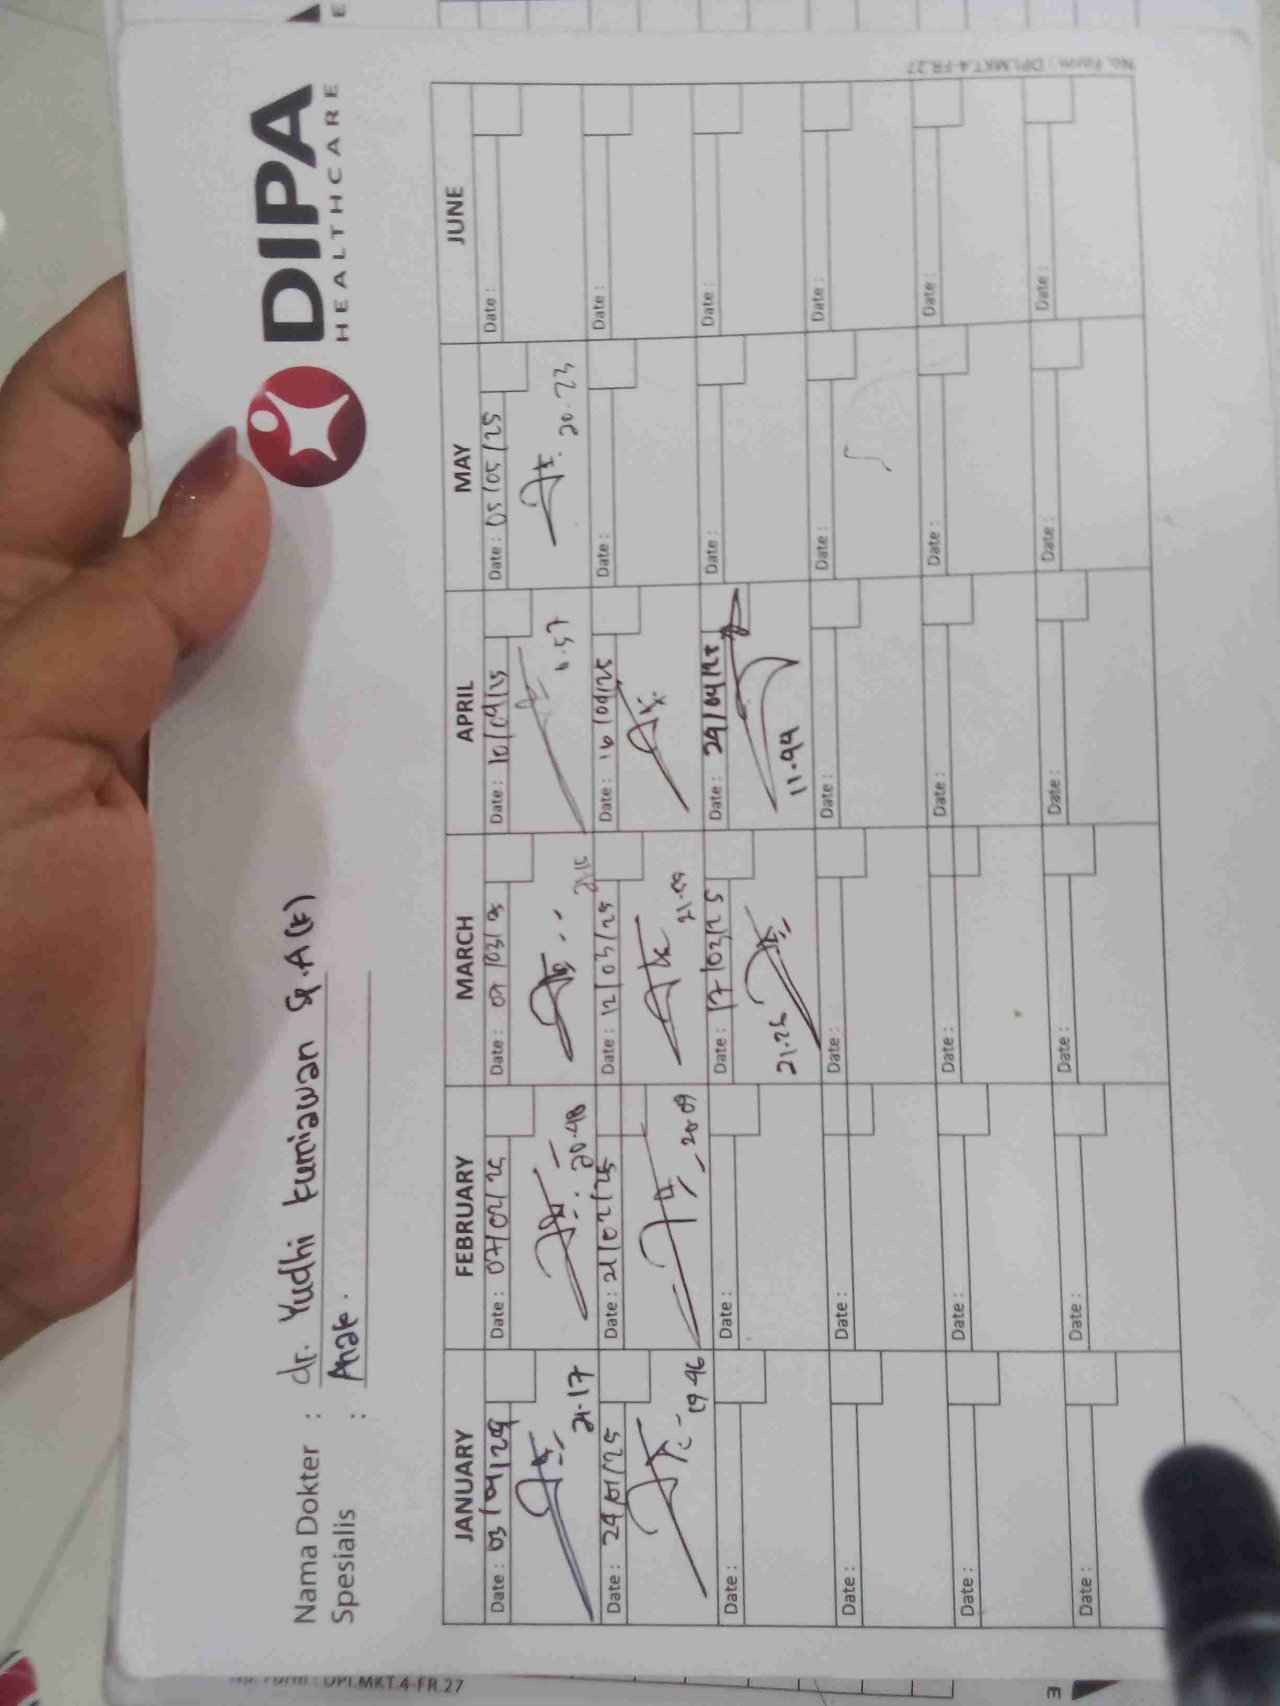 DIPA
HEALTHCARE
Nama Dokter : dr. Yudhi kurniawan Sp.A(K)
Spesialis : Anak.
JANUARY FEBRUARY MARCH APRIL MAY JUNE
Date : 03/01/25 Date : 07/02/25 Date : 07/03/25 Date : 10/04/25 Date : 05/05/25 Date :
21.17 20.48 21.15 20.23
Date : 24/01/25 Date : 21/02/25 Date : 12/03/25 Date : 16/04/25 Date : Date :
19.46 20.09 21.09
Date : Date : Date : 17/03/25 Date : 29/04/25 Date : Date :
21.25 11.44
Date : Date : Date : Date : Date : Date :
Date : Date : Date : Date : Date : Date :
Date : Date : Date : Date : Date : Date :
No. Form : DPI.MKT.4-FR.27
No. Form : DPI.MKT.4-FR.27